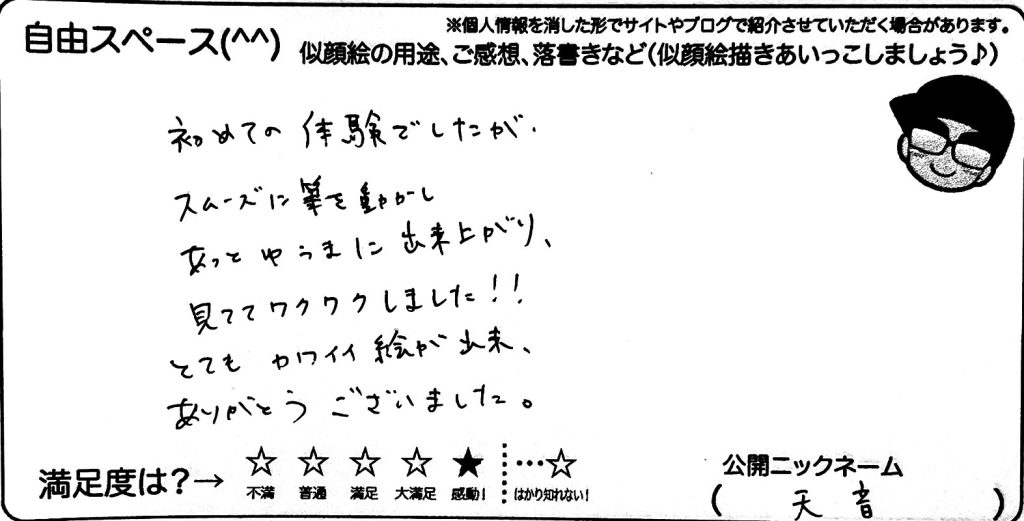 自由スペース(^^)
※個人情報を消した形でサイトやブログで紹介させていただく場合があります。
似顔絵の用途、ご感想、落書きなど(似顔絵描きあいっこしましょう♪)
初めての体験でしたが、
スムーズに筆を動かし
あっとゆうまに出来上がり、
見ててワクワクしました!!
とてもカワイイ絵が出来、
ありがとうございました。
満足度は?→ ☆ ☆ ☆ ☆ ★ …☆
不満 普通 満足 大満足 感動! はかり知れない!
公開ニックネーム
(天音)